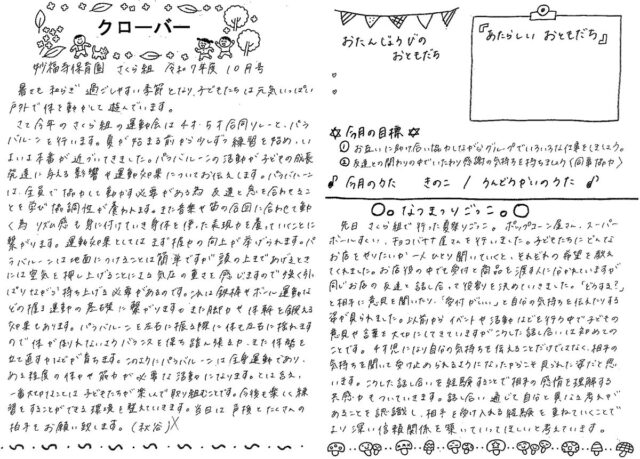 クローバー
妙福寺保育園 さくら組 令和7年度 10月号
暑さも和らぎ 過ごしやすい季節となり、子どもたちは元気いっぱい
戸外で体を動かして遊んでいます。
さて今年のさくら組の運動会は4才・5才合同リレーと、パラ
バルーンを行います。夏が始まる前から少しずつ練習を始め、い
よいよ本番が近づいてきました。パラバルーンの活動が子どもの成長
発達に与える影響や運動効果についてお伝えします。パラバルーン
は、全員で協力して動かす必要がある為 友達と息を合わせるこ
とを学び協調性が養われます。また音楽や笛の合図に合わせて動
く為 リズム感も身に付いていき身体を使った表現力を養っていくことに
繋がります。運動効果としてはまず握力の向上が挙げられます。パ
ラバルーンは地面につけることは簡単ですが頭の上まであげるとき
には空気を押し上げることによる気圧の重さを感じますので強く引っ
ぱりながら持ち上げる必要があるのです。これは鉄棒やボール運動な
どの握る運動の基礎に繋がりますがまた脚力や体幹を鍛える
効果もあります。パラバルーンを左右に振る際に体も左右に振れます
ので体が倒れないようバランスを保ち踏ん張る力、また体勢を
立て直す力などが育ちます。このようにパラバルーンは全身運動であり、
ある程度の体力や筋力が必要な活動になります。とは言え、
一番大切なことは子どもたちが楽しんで取り組むことです。今後も楽しく練
習をすることができる環境を整えていきます。当日は声援とたくさんの
拍手をお願い致します。(秋谷)
おたんじょうびの
おともだち
『あたらしい おともだち』
☆今月の目標☆
① お互いに助け合い協力しながらグループでいろいろな仕事をしましょう。
② 友達との関わりの中でいたわり感謝の気持ちを持ちましょう(同事協力)
♪今月のうた きのこ / うんどうかいのうた♪
なつまつりごっこ
先日 さくら組で行った夏祭りごっこ。 ポップコーン屋さん、スーパー
ボールすくい、チョコバナナ屋さんを行いました。子どもたちにどんな
お店をやりたいか一人ひとり聞いていくと、それぞれの希望を教え
てくれました。お店役の中でも受付と商品を渡す人に分かれていますが
同じお店の友達と話し合って役割を決めていきました。「どうする?」
と相手に意見を聞いたり、「受付がいい」と自分の気持ちを伝えたりする
姿が見られました。以前からイベントや活動などを行う中で子どもの
意見や言葉を大切にしてきていますがこうした話し合いは初めての
ことです。4才児になり自分の気持ちを伝えることだけではなく、相手の
気持ちを聞いて受け止められるようになったからこそ見られた姿だと思
います。こうした話し合いを経験することで相手の感情を理解する
共感力もついていきます。話し合い通じて自分と異なる考えが
あることを認識し、相手を受け入れる経験を重ねていくことで
より深い信頼関係を築いていってほしいと考えています。